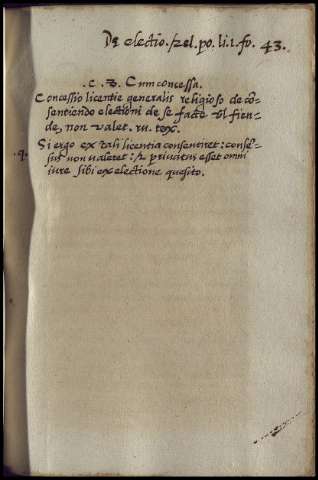 De electio. / & el. po. li. 1. fo. 43.
.c. 3. Cum concessa.
Concessio licentie generalis religioso de cõ-
sentiendo electioni de se facte vl fien-
de, non valet. ru. tex.
.q. Si ergo ex tali licentia consentiret: consẽ-
sus non valeret: / & privatus esset omni
iure sibi ex electione quesito.